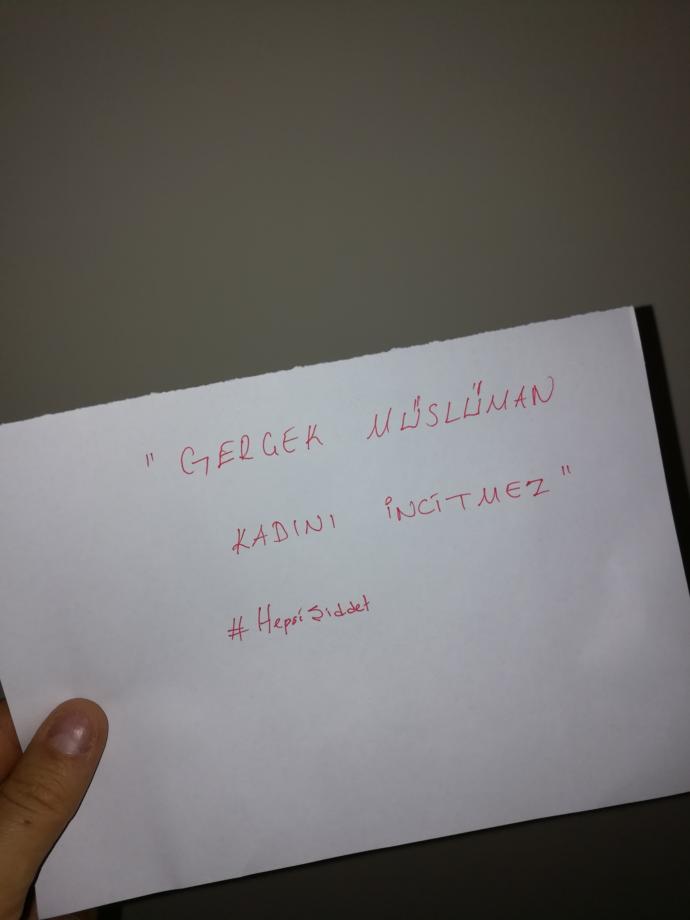 " GERGEK MÜSLÜMAN
KADINI İNCİTMEZ "
#HepsiSiddet